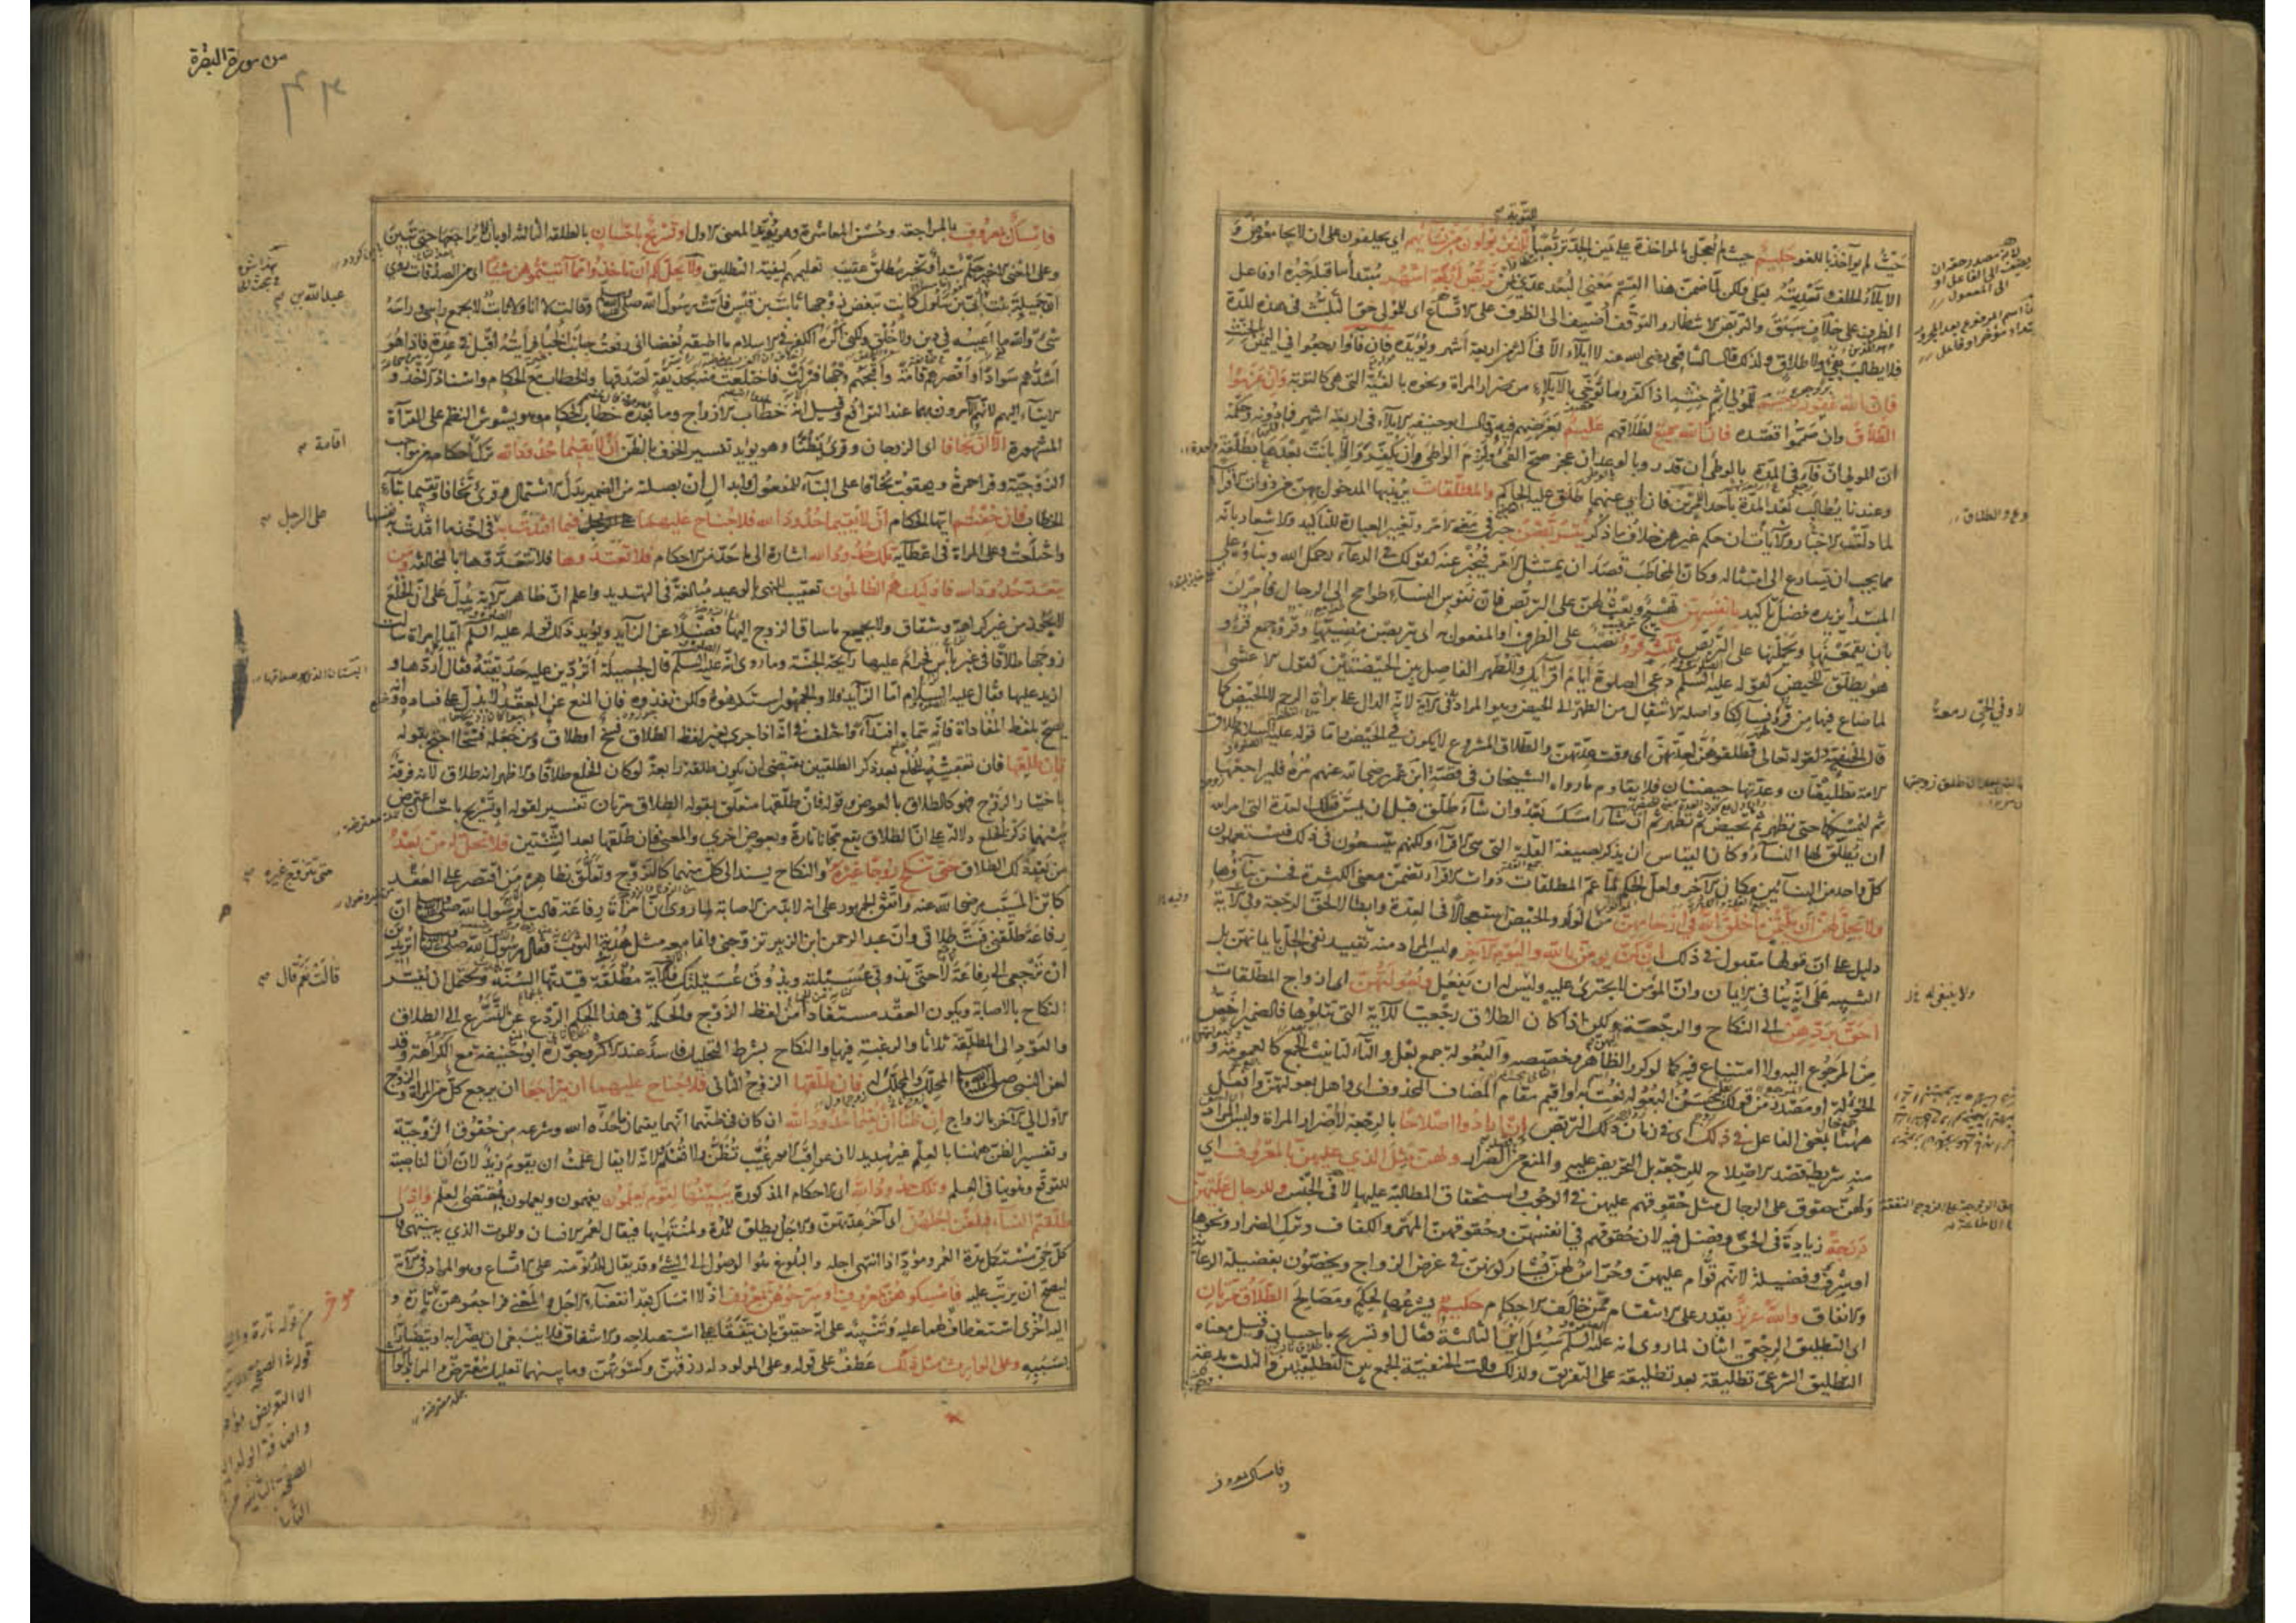 للتوبة
حيث لم يؤاخذ باللغو حليم حيث لم يعجل بالمؤاخذة على يمين الجد تربصا للذين يؤلون من نسائهم اي يحلفون على ان لا يجامعوهن و
الايلاء الحلف وتعديته بعلى ولكن لما ضمن هذا القسم معنى البعد عدي بمن تربص اربعة اشهر مبتدأ ما قبله خبره او فاعل
الظرف على خلاف سبق والتربص الانتظار والتوقف أضيف الى الظرف على الاتساع اي للمولي حق التلبث في هذه المدة
فلا يطالب بفيء ولا طلاق ولذلك قال الشافعي رضي الله عنه لا ايلاء الا في اكثر من اربعة أشهر ويؤيده فان فاؤا رجعوا في اليمين بالحنث
فان الله غفور رحيم للمولي اثم حنثه اذا كفر وما توخى بالايلاء من ضرار المرأة ونحوه بالفيئة التي هي كالتوبة وان عزموا
الطلاق وان صمموا قصده فان الله سميع لطلاقهم عليم بغرضهم فيه وقال ابو حنيفة الايلاء في اربعة اشهر فما دونه وحكمه
ان المولي ان فاء في المدة بالوطئ ان قدر وبالوعد ان عجز صح الفئ ولزم الواطئ وان يكفر والا بانت بعدها بطلقة
وعندنا يطالب بعد المدة بأحد الامرين فان أبى عنهما طلق عليه الحاكم والمطلقات يريد بها المدخول بهن من ذوات الاقراء
لما دلت الاخبار والآيات ان حكم غيرهن خلاف ما ذكر يتربصن خبر في معنى الامر وتغيير العبارة للتأكيد والاشعار بانه
مما يجب ان يسارع الى امتثاله وكأن المخاطب قصد ان يمتثل الامر فيخبر عنه كقولك في الدعاء رحمك الله وبناؤه على
المبتدأ يزيده فضل تأكيد بانفسهن تهييج وبعث لهن على التربص فان نفوس النساء طوامح الى الرجال فامرن
بان يقمعنها ويحملنها على التربص ثلثة قروء نصب على الظرف او المفعول به اي يتربصن مضيها وقروء جمع قرء و
هو يطلق للحيض كقوله عليه السلم دعي الصلوة أيام اقرائك وللطهر الفاصل بين الحيضتين كقول الاعشى
لما ضاع فيها من قروء نسائكا واصله الانتقال من الطهر الى الحيض وهو المراد في الآية لانه الدال على براءة الرحم لا الحيض كما
قال الحنفية لقوله تعالى فطلقوهن لعدتهن اي وقت عدتهن والطلاق المشروع لا يكون في الحيض واما قوله عليه السلم طلاق
الامة تطليقتان وعدتها حيضتان فلا يقاوم ما رواه الشيخان في قصة ابن عمر رضي الله عنهم مره فليراجعها
ثم ليمسكها حتى تطهر ثم تحيض ثم تطهر ثم ان شاء امسك بعد وان شاء طلق قبل ان يمس فتلك العدة التي امر الله
ان يطلق لها النساء وكان القياس ان يذكر بصيغة القلة التي هي الاقراء ولكنهم يتسعون في ذلك فيستعملون
كل واحد من البنائين مكان الآخر ولعل الحكم لما عم المطلقات ذوات الاقراء تضمن معنى الكثرة فحسن بناؤها
ولا يحل لهن ان يكتمن ما خلق الله في ارحامهن من الولد والحيض استعجالا في العدة وابطالا لحق الرجعة وفيه
دليل على ان قولها مقبول في ذلك ان كن يؤمن بالله واليوم الآخر وليس المراد منه تقييد نفي الحل بايمانهن بل
التنبيه على انه ينافي الايمان وان المؤمن لا يجترئ عليه وليس له ان يفعل وبعولتهن اي ازواج المطلقات
احق بردهن الى النكاح والرجعة ولكن اذا كان الطلاق رجعيا للآية التي تتلوها فالضمير اخص
من المرجوع اليه ولا امتناع فيه كما لو كرر الظاهر وخصصه والبعولة جمع بعل والتاء لتأنيث الجمع كالعمومة و
الخؤولة او مصدر من قولك حسن البعولة نعت به واقيم مقام المضاف المحذوف اي واهل بعولتهن وافعل
ههنا بمعنى الفاعل في ذلك اي في زمان ذلك التربص ان ارادوا اصلاحا بالرجعة لا لضرار المرأة وليس المراد
منه شريطة قصد الاصلاح للرجعة بل التحريض عليه والمنع من الضرار ولهن مثل الذي عليهن بالمعروف اي
ولهن حقوق على الرجال مثل حقوقهم عليهن في الوجوب واستحقاق المطالبة عليها لا في الجنس وللرجال عليهن
درجة زيادة في الحق وفضل فيه لان حقوقهم في انفسهن وحقوقهن المهر والكفاف وترك الضرار ونحوها
او شرف وفضيلة لانهم قوام عليهن وحراس لهن يشاركونهن في غرض الزواج ويخصون بفضيلة الرعاية
والانفاق والله عزيز يقدر على الانتقام ممن خالف الاحكام حكيم يشرعها لحكم ومصالح الطلاق مرتان
اي التطليق الرجعي اثنان لما روي انه عليه السلم سئل اين الثالثة فقال او تسريح باحسان وقيل معناه
التطليق الشرعي تطليقة بعد تطليقة على التفريق ولذلك قالت الحنفية الجمع بين التطليقتين والثلث بدعة
فامساك بمعروف
من سورة البقرة
فامساك بمعروف بالمراجعة وحسن المعاشرة وهو يؤيد المعنى الاول او تسريح باحسان بالطلقة الثالثة او بان لا يراجعها حتى تبين
وعلى المعنى الاخير حكم مبتدأ وتخيير مطلق عقيب تعليمهم كيفية التطليق ولا يحل لكم ان تأخذوا مما آتيتموهن شيئا اي من الصدقات روي
ان جميلة بنت أبي بن سلول كانت تبغض زوجها ثابت بن قيس فأتت رسول الله صلى الله عليه وسلم وقالت لا انا ولا ثابت لا يجمع راسي وراسه
شئ والله ما اعيبه في دين ولا خلق ولكني اكره الكفر في الاسلام ما اطيقه بغضا اني رفعت جانب الخباء فرأيته اقبل في عدة فاذا هو
اشدهم سوادا واقصرهم قامة واقبحهم وجها فنزلت فاختلعت منه بحديقة اصدقها والخطاب مع الحكام واسناد الاخذ و
الايتاء اليهم لانهم الآمرون بهما عند الترافع وقيل انه خطاب للازواج وما بعده خطاب للحكام وهو يشوش النظم على القراءة
المشهورة الا ان يخافا اي الزوجان وقرئ يظنا وهو يؤيد تفسير الخوف بالظن ان لا يقيما حدود الله بترك احكامه من مواجب
الزوجية وقرأ حمزة ويعقوب يخافا على البناء للمفعول وابدال ان بصلته من الضمير بدل الاشتمال وقرئ تخافا وتقيما بتاء
الخطاب فان خفتم ايها الحكام ان لا يقيما حدود الله فلا جناح عليهما فيما افتدت به في اخذ ما افتدت به
واختلعت وعلى المرأة في اعطائه تلك حدود الله اشارة الى ما حد من الاحكام فلا تعتدوها فلا تتعدوها بالمخالفة ومن
يتعد حدود الله فاولئك هم الظالمون تعقيب للنهي بالوعيد مبالغة في التهديد واعلم ان ظاهر الآية يدل على ان الخلع
لا يجوز من غير كراهة وشقاق ولا بجميع ما ساق الزوج اليها فضلا عن الزائد ويؤيد ذلك قوله عليه السلم أيما امرأة سألت
زوجها طلاقا في غير بأس فحرام عليها رائحة الجنة وما روي انه عليه السلم قال لجميلة أتردين عليه حديقته فقالت أردها و
ازيد عليها فقال عليه السلام اما الزائد فلا والجمهور استكرهوه ولكن نفذوه فان المنع عن العقد لا يدل على فساده وانه
يصح بلفظ المفاداة فانه سماه افتداء واختلف في انه اذا جرى بغير لفظ الطلاق فسخ او طلاق ومن جعله فسخا احتج بقوله
فان طلقها فان تعقيبه للخلع بعد ذكر الطلقتين يقتضي ان يكون طلقة رابعة لو كان الخلع طلاقا والاظهر انه طلاق لانه فرقة
باختيار الزوج فهو كالطلاق بالعوض وقوله فان طلقها متعلق بقوله الطلاق مرتان تفسير لقوله او تسريح باحسان اعترض
بينهما ذكر الخلع دلالة على ان الطلاق يقع مجانا تارة وبعوض اخرى والمعنى فان طلقها بعد الثنتين فلا تحل له من بعد
من بعد ذلك الطلاق حتى تنكح زوجا غيره والنكاح يسند الى كل منهما كالتزوج وتعلق بظاهره من اقتصر على العقد
كابن المسيب رضي الله عنه واتفق الجمهور على انه لابد من الاصابة لما روي ان امرأة رفاعة قالت لرسول الله صلى الله عليه وسلم ان
رفاعة طلقني فبت طلاقي وان عبد الرحمن ابن الزبير تزوجني وانما معه مثل هدبة الثوب فقال رسول الله صلى الله عليه وسلم أتريدين
ان ترجعي الى رفاعة لا حتى تذوقي عسيلته ويذوق عسيلتك فالآية مطلقة قيدتها السنة ويحتمل ان يفسر
النكاح بالاصابة ويكون العقد مستفادا من لفظ الزوج والحكمة في هذا الحكم الردع عن التسرع الى الطلاق
والعود الى المطلقة ثلاثا والرغبة فيها والنكاح بشرط التحليل فاسد عند الاكثر وجوزه ابو حنيفة مع الكراهة وقد
لعن النبي صلى الله عليه وسلم المحلل والمحلل له فان طلقها الزوج الثاني فلا جناح عليهما ان يتراجعا ان يرجع كل من المرأة والزوج
الاول الى الآخر بالزواج ان ظنا ان يقيما حدود الله ان كان في ظنهما انهما يقيمان ما حده الله وشرعه من حقوق الزوجية
وتفسير الظن ههنا بالعلم غير سديد لان عواقب الامور غيب تظن ولا تعلم ولانه لا يقال علمت ان يقوم زيد لان ان الناصبة
للتوقع وهو ينافي العلم وتلك حدود الله اي الاحكام المذكورة يبينها لقوم يعلمون يفهمون ويعملون بمقتضى العلم واذا
طلقتم النساء فبلغن اجلهن اي آخر عدتهن والاجل يطلق للمدة ولمنتهاها فيقال لعمر الانسان وللموت الذي به ينتهي قال
كل حي مستكمل مدة العمر ومود اذا انتهى اجله والبلوغ هو الوصول الى الشئ وقد يقال للدنو منه على الاتساع وهو المراد في الآية
ليصح ان يرتب عليه فامسكوهن بمعروف او سرحوهن بمعروف اذ لا امساك بعد انقضاء الاجل والمعنى فراجعوهن تارة و
اليه اخرى استعطاف لهما عليه وتنبيه على انه حقيق بان يتفقا على استصلاحه والاشفاق فلا ينبغي ان يضرا به او يتضارا
بسببه وعلى الوارث مثل ذلك عطف على قوله وعلى المولود له رزقهن وكسوتهن وما بينهما تعليل معترض والمراد
عبد الله بن
اقامة
على الرجل
حتى تتزوج غيره
قالت نعم قال
جملة معترضة